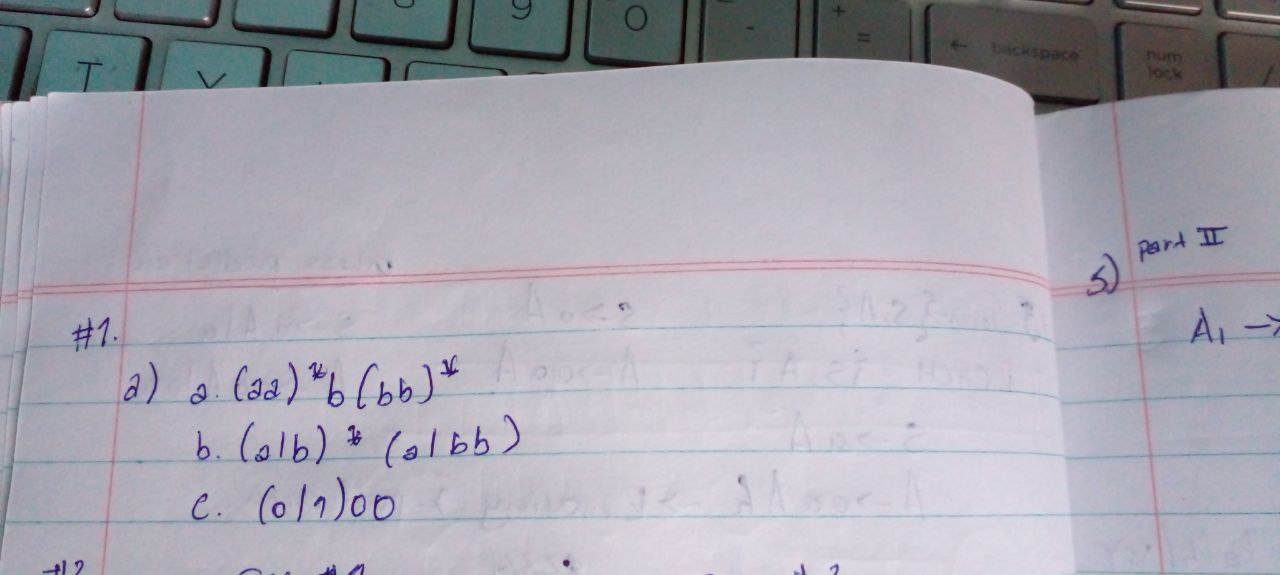 9
0
-
+
=
T
Y
← backspace
num
lock
/
#1.
a) a. (aa)*b(bb)*
b. (a|b)* (a|bb)
c. (0|1)00
5) part II
A₁ →